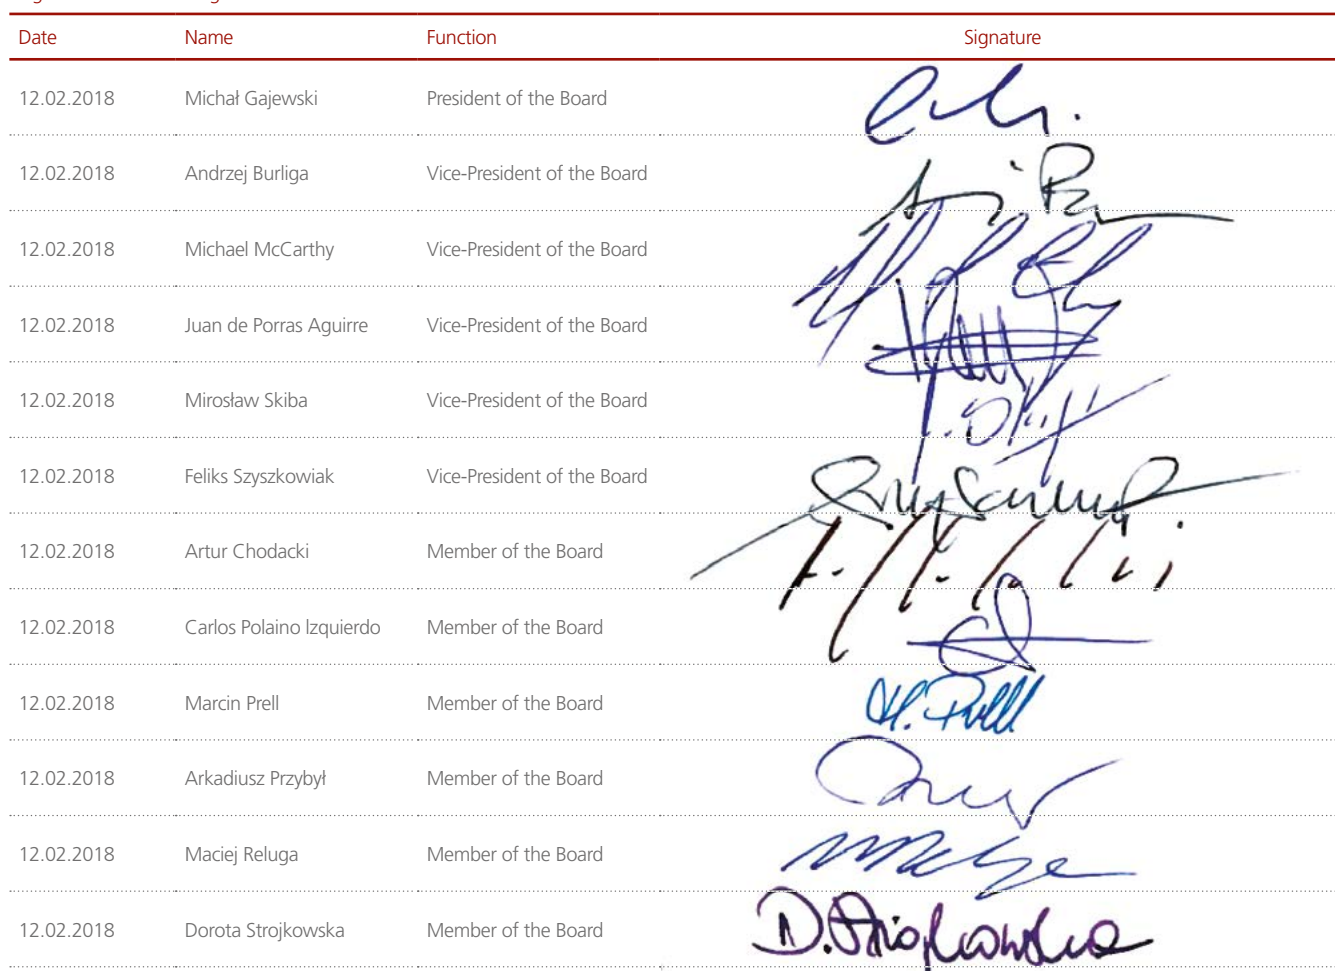 Date Name Function Signature
12.02.2018 Michał Gajewski President of the Board
12.02.2018 Andrzej Burliga Vice-President of the Board
12.02.2018 Michael McCarthy Vice-President of the Board
12.02.2018 Juan de Porras Aguirre Vice-President of the Board
12.02.2018 Mirosław Skiba Vice-President of the Board
12.02.2018 Feliks Szyszkowiak Vice-President of the Board
12.02.2018 Artur Chodacki Member of the Board
12.02.2018 Carlos Polaino Izquierdo Member of the Board
12.02.2018 Marcin Prell Member of the Board M. Prell
12.02.2018 Arkadiusz Przybył Member of the Board
12.02.2018 Maciej Reluga Member of the Board
12.02.2018 Dorota Strojkowska Member of the Board D. Strojkowska